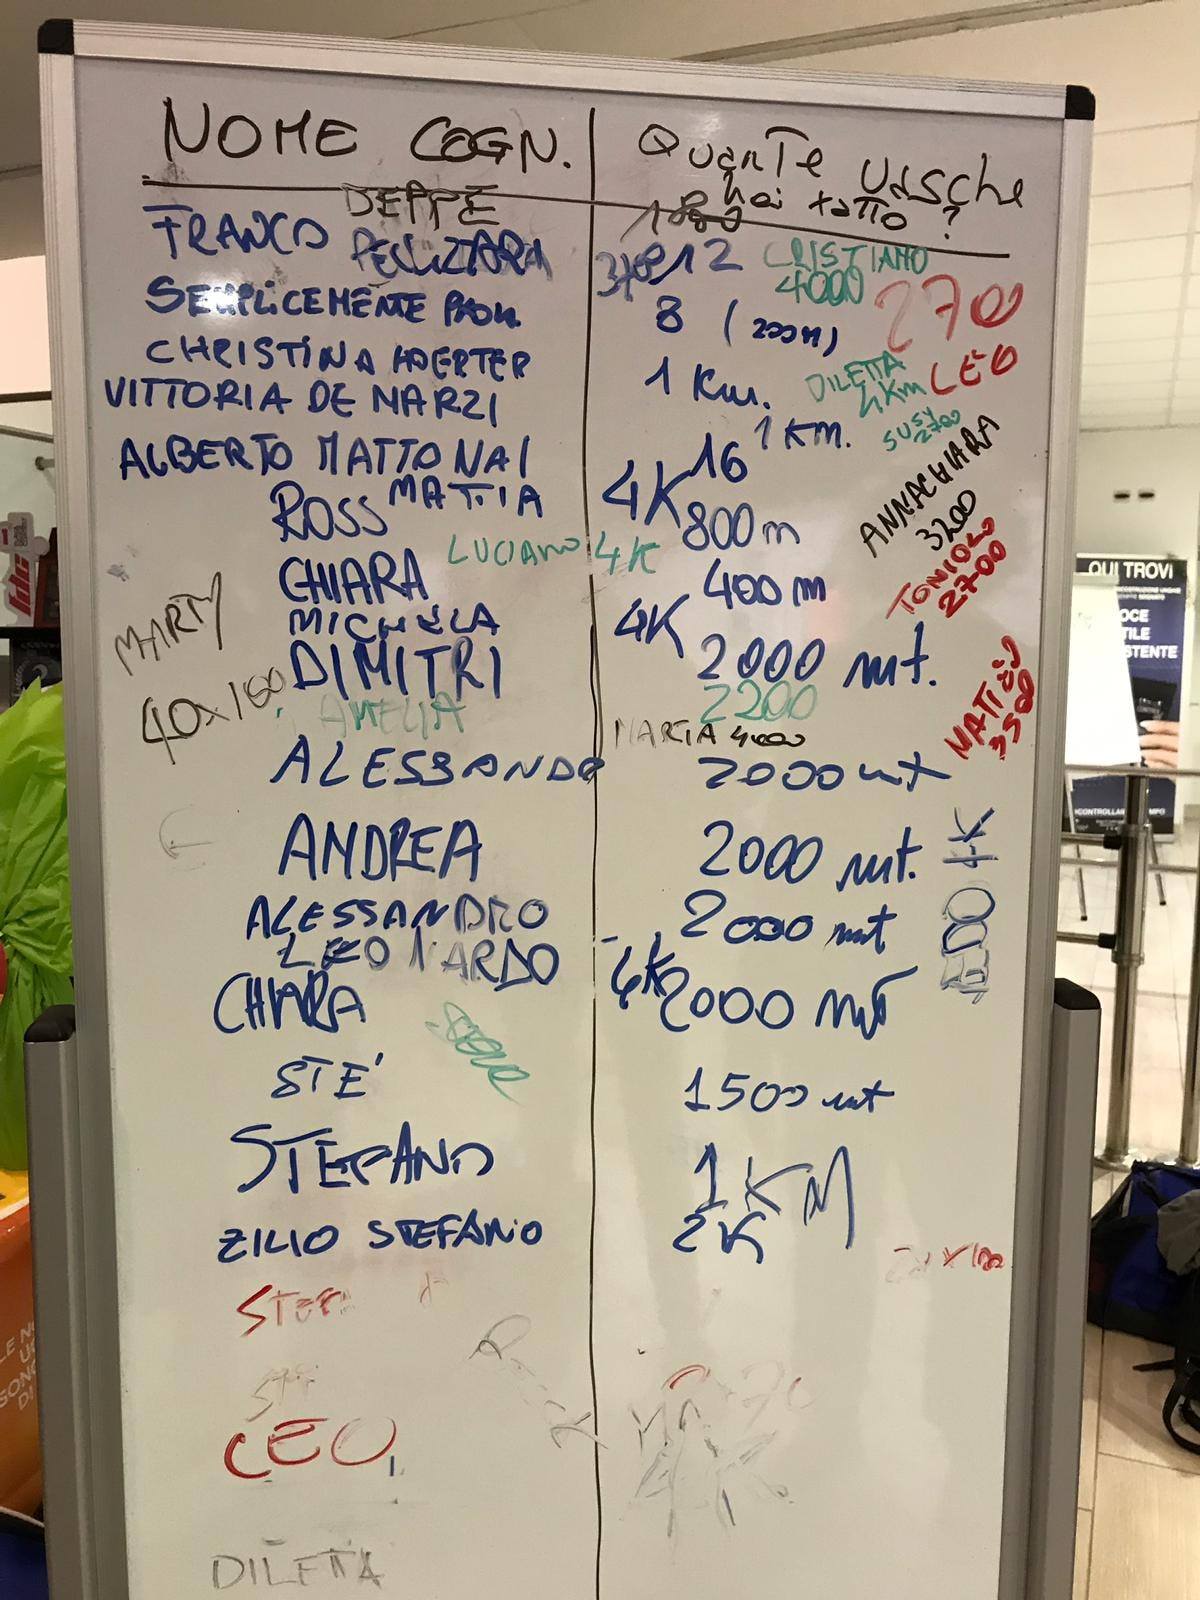 NOME COGN.
QUANTE VASCHE
hai fatto?
BEPPE
1880
FRANCO
12
CRISTIANO
4000
SEMPLICEMENTE
8 (200m)
2700
LEO
CHRISTINA HOERTER
1 Km.
DILETTA
4Km
VITTORIA DE MARZI
1 KM.
SUSY
2700
ALBERTO MATTONAI
16
MATTIA
4K
ANNACHIARA
3200
ROSS
800m
LUCIANO 4K
TONIOLO
2700
CHIARA
400m
MICHELA
4K
MARTY
40x100
DIMITRI
2000 mt.
AMELIA
2200
MATTEO
3500
MARTA 4000
ALESSANDO
2000 mt
ANDREA
2000 mt.
EDO 4K
ALESSANDRO
2000 mt
LEONARDO
4K
CHIARA
2000 mt
STE'
1500 mt
STEFANO
1 KM
ZILIO STEFANO
2K
STEF
LEO
DILETTA
QUI TROVI